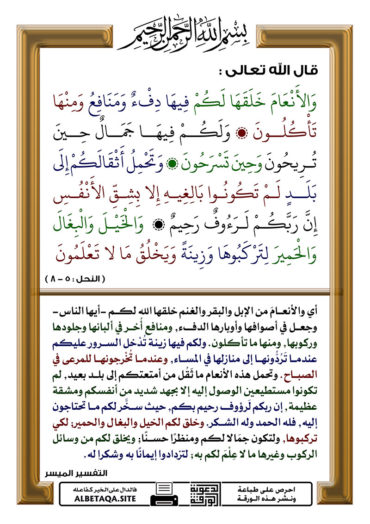 بسم الله الرحمن الرحيم
قال الله تعالى :
وَالأَنْعَامَ خَلَقَهَا لَكُمْ فِيهَا دِفْءٌ وَمَنَافِعُ وَمِنْهَا
تَأْكُلُونَ ۞ وَلَكُمْ فِيهَا جَمَالٌ حِينَ
تُرِيحُونَ وَحِينَ تَسْرَحُونَ ۞ وَتَحْمِلُ أَثْقَالَكُمْ إِلَى
بَلَدٍ لَمْ تَكُونُوا بَالِغِيهِ إِلا بِشِقِّ الأَنْفُسِ
إِنَّ رَبَّكُمْ لَرَءُوفٌ رَحِيمٌ ۞ وَالْخَيْلَ وَالْبِغَالَ
وَالْحَمِيرَ لِتَرْكَبُوهَا وَزِينَةً وَيَخْلُقُ مَا لا تَعْلَمُونَ
( النحل : ٥ - ٨ )
أي والأنعـامَ من الإبل والبقر والغنم خلقها الله لكـم -أيها الناس-
وجعـل في أصوافها وأوبارها الدفء, ومنافع أُخـر في ألبانها وجلودها
وركوبها, ومنها ما تأكلون. ولكم فيها زينة تُدْخل السـرور عليكم
عندمـا تَرُدُّونهـا إلى منازلها في المساء, وعندمـا تُخْرجونها للمرعى في
الصبـاح. وتحمل هذه الأنعام ما ثَقُل من أمتعتكم إلى بلـد بعيد, لم
تكونوا مستطيعين الوصول إليه إلا بجهد شديد من أنفسكم ومشقة
عظيمة, إن ربكم لَرؤوف رحيم بكم, حيث سـخَّر لكم مـا تحتاجون
إليه, فله الحمد وله الشـكر. وخلق لكم الخيل والبغال والحمير; لكي
تركبوها, ولتكون جَمَالا لكم ومنظرًا حسـنًا; ويخلق لكم من وسائل
الركوب وغيرها ما لا عِلْمَ لكم به; لتزدادوا إيمانًا به وشكرا له .
التفسير الميسر
احرص على طباعة
ونشر هذه الورقة
الدعوية
الورقة
فالدال على الخير كفاعله
ALBETAQA.SITE